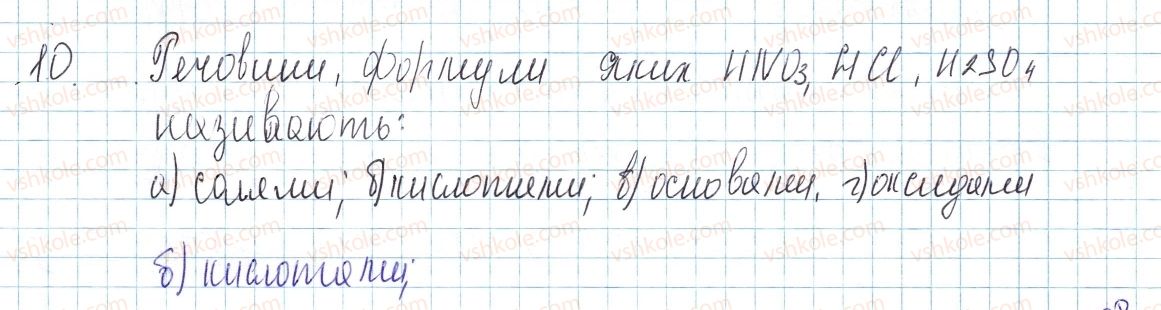 10. Речовини, формули яких HNO3, HCl, H2SO4
називають:
а) солями; б) кислотами; в) основами, г) оксидами
б) кислотами;